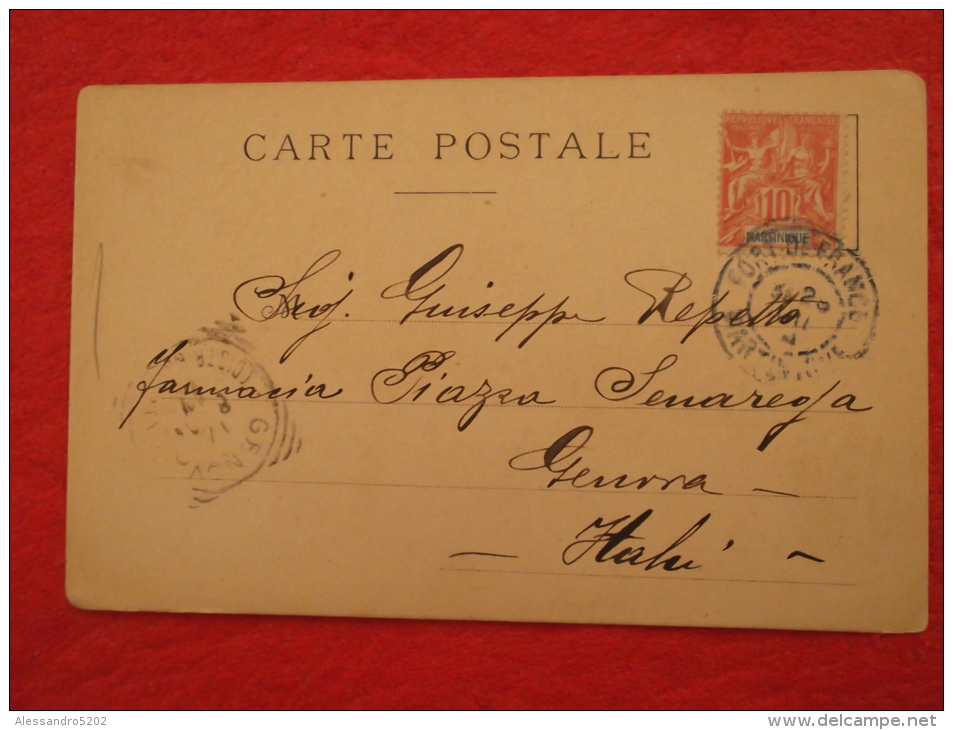 CARTE POSTALE
REPVBLIQVE FRANÇAISE
10
MARTINIQUE
FORT-DE-FRANCE
MARTINIQUE
Sig. Giuseppe Repetto
farmacia Piazza Senarega
Genova -
- Itali -
GENOVA
Alessandro5202
www.delcampe.net